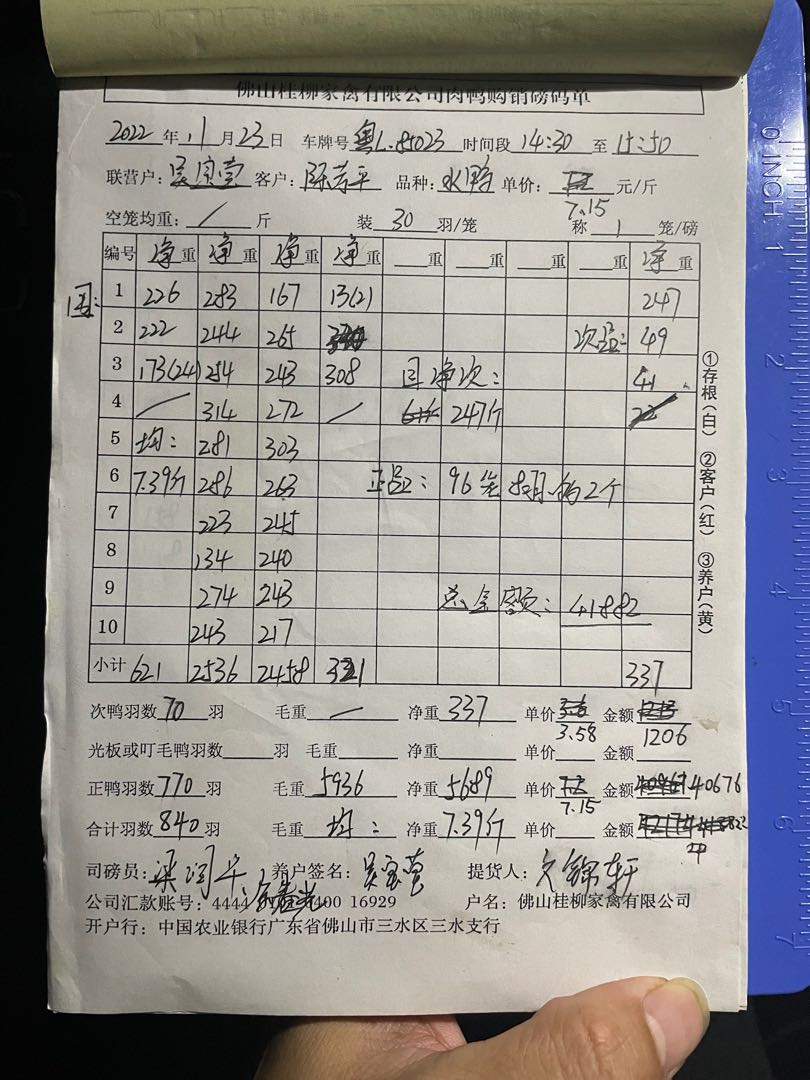 佛山桂柳家禽有限公司肉鸭购销磅码单
2022 年 11 月 23 日 车牌号 粤L.85023 时间段 14:30 至 15:50
联营户: 客户: 陈芳平 品种: 水鸭 单价: 7.15 元/斤
空笼均重: / 斤 装 30 羽/笼 称 1 笼/磅
编号 净重 净重 净重 净重 重 重 重 重 净重
回: 1 226 283 167 13(2) 247
2 222 244 265 次品: 49
3 173(24) 254 243 308 回净次: 41
4 / 314 272 / 247斤
5 均: 281 303
6 7.39斤 286 263 正品: 96笼
7 223 245
8 134 240
9 274 243 总金额: 41882
10 243 217
小计 621 2536 2458 321 337
①存根(白) ②客户(红) ③养户(黄)
次鸭羽数 70 羽 毛重 / 净重 337 单价 3.58 金额 1206
光板或叮毛鸭羽数 羽 毛重 净重 单价 金额
正鸭羽数 770 羽 毛重 5936 净重 5689 单价 7.15 金额 40676
合计羽数 840 羽 毛重 均: 净重 7.39斤 单价 金额
司磅员: 梁润华 养户签名: 提货人: 锦轩
公司汇款账号: 4444 400 16929 户名: 佛山桂柳家禽有限公司
开户行: 中国农业银行广东省佛山市三水区三水支行
0 INCH 1
2
3
4
5
6
7